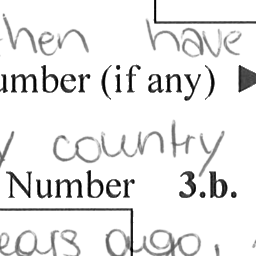 then have
umber (if any) ▶
y country
Number 3.b.
ears ago,